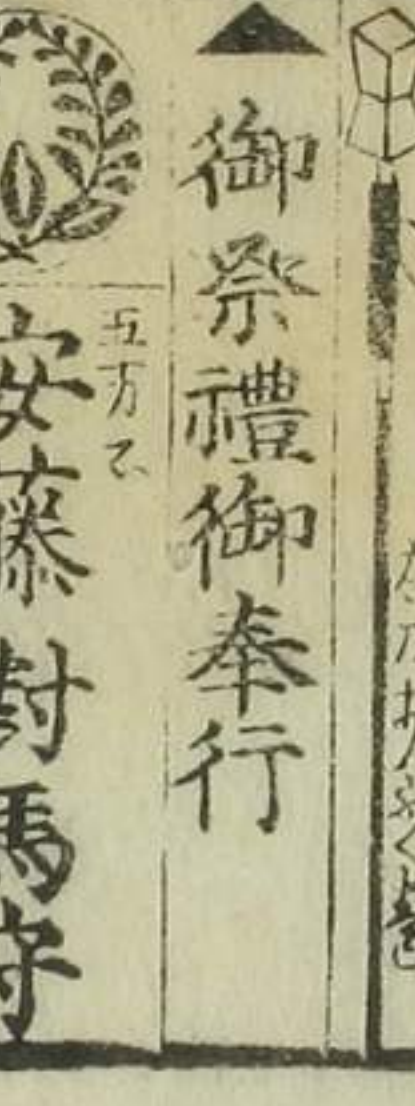 御祭禮御奉行
五万石
安藤対馬守